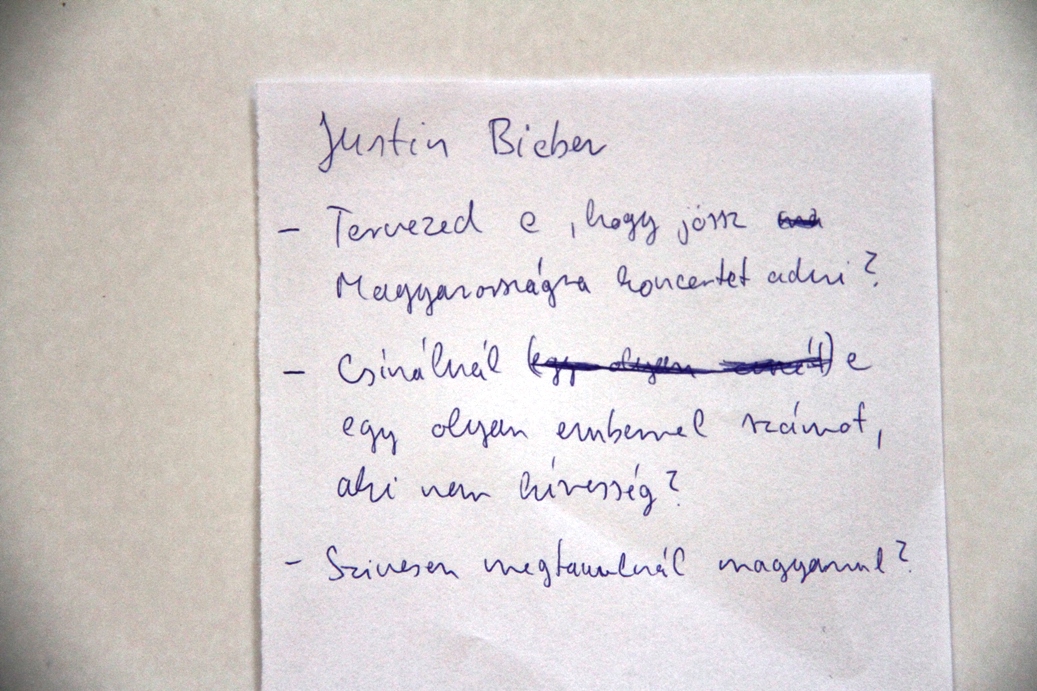 Justin Bieber
- Tervezed e, hogy jössz
Magyarországra koncertet adni?
- Csinálnál e
egy olyan emberrel számot,
aki nem híresség?
- Szivesen megtanulnál magyarul?